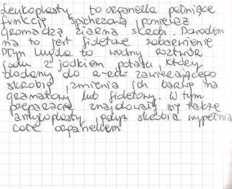 Leukoplasty to organella pełniące
funkcję spichrzową, ponieważ
gromadzą ziarna skrobi. Dowodem
na to jest fioletowe zabarwienie
Płyn Lugola to wodny roztwór
jodu z jodkiem potasu, który
dodany do zawierającego
skrobię zmienia ich barwę na
granatową lub fioletową. W tym
preparacie znajdowały się także
amyloplasty, gdyż skrobia wypełnia
całe organellum